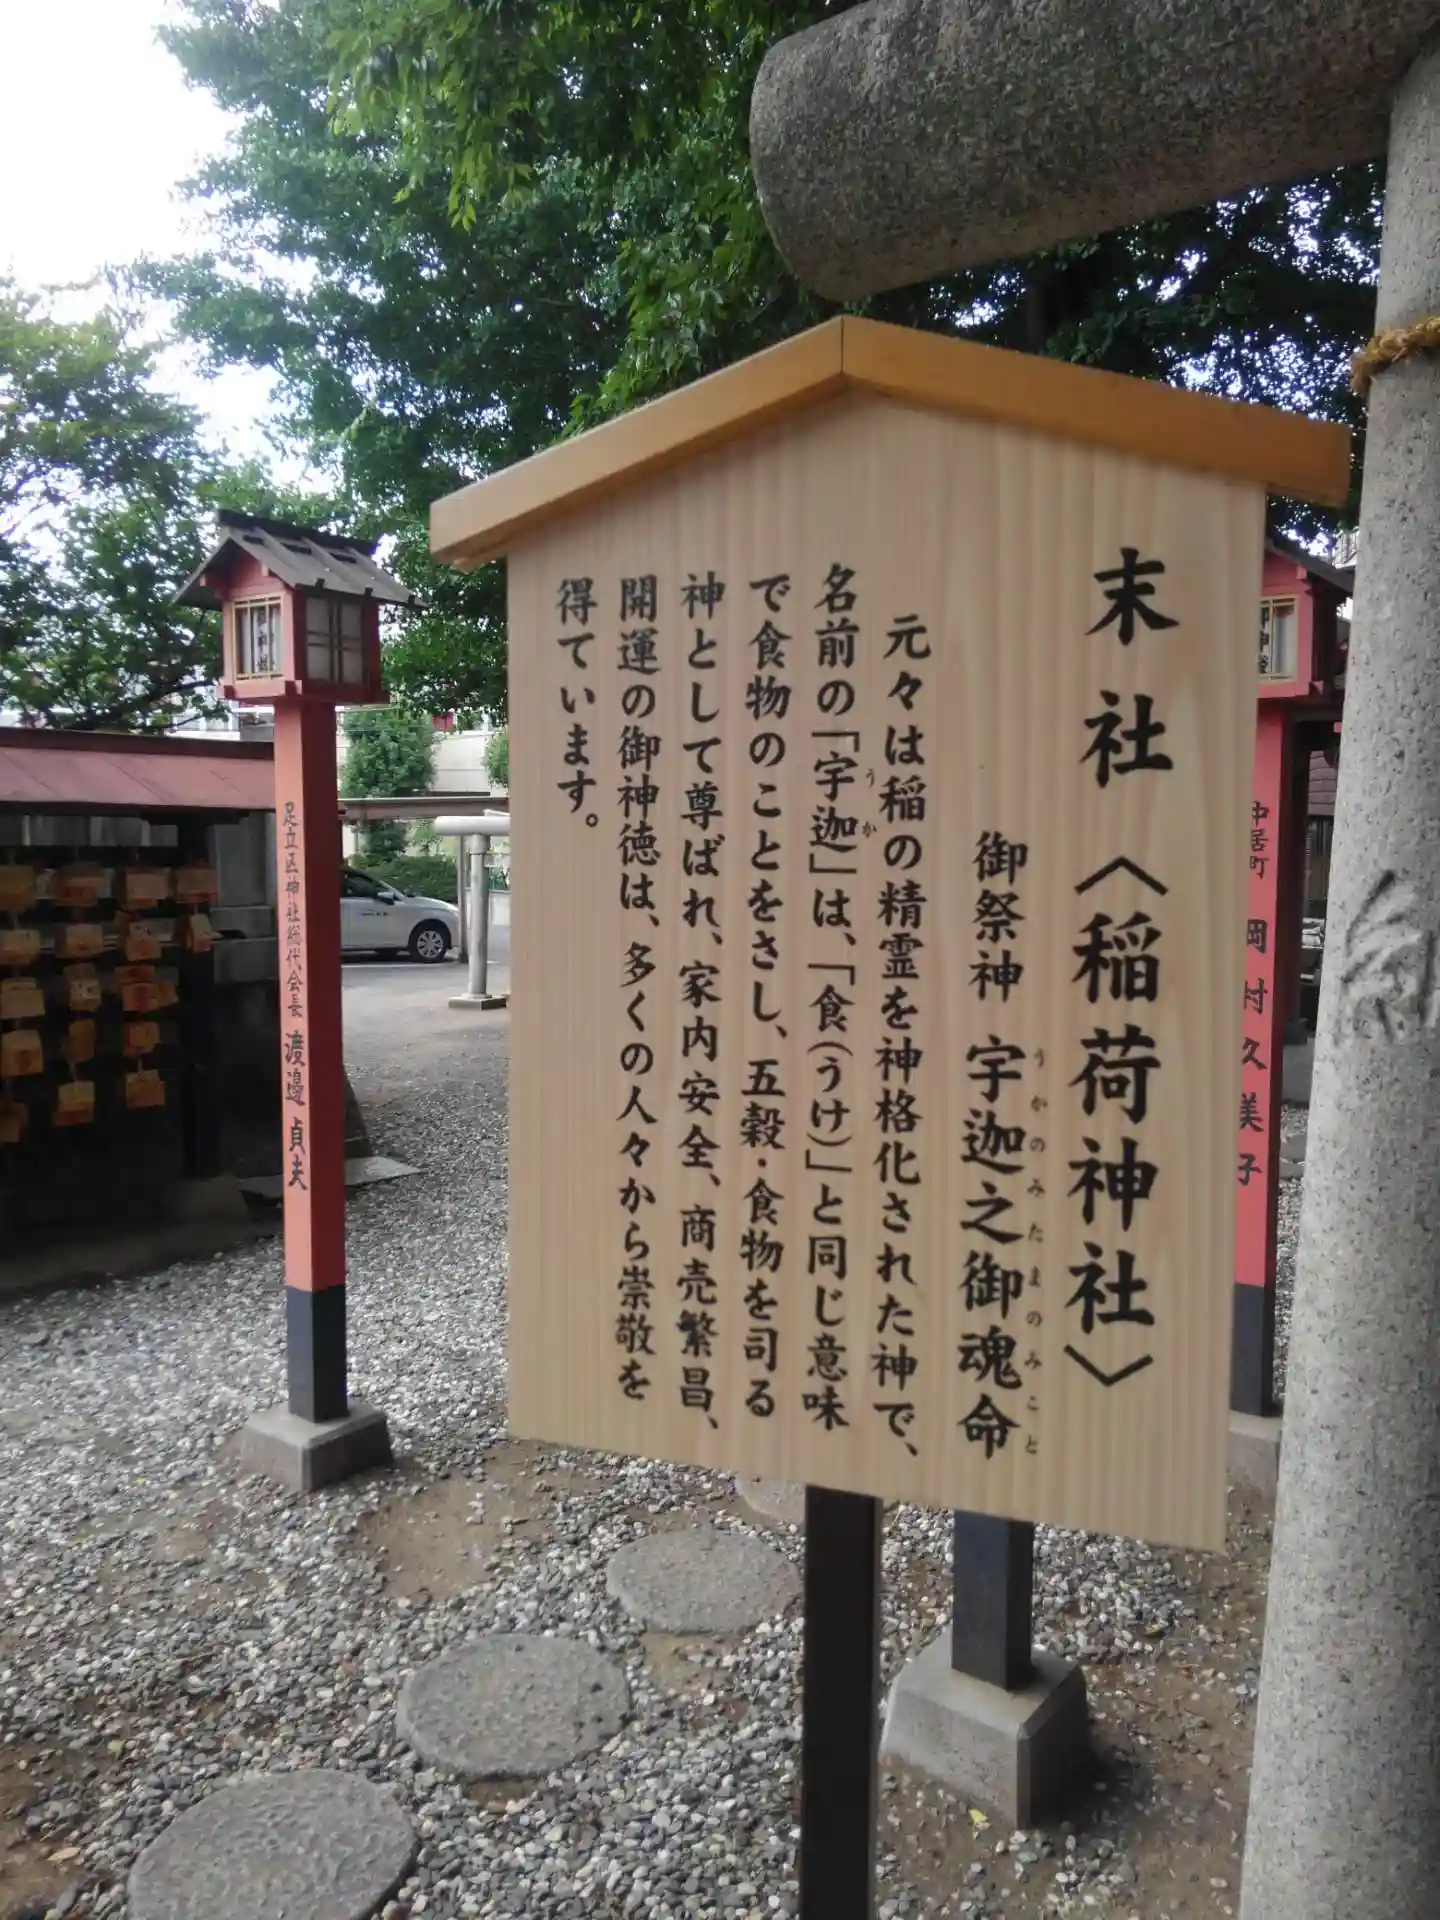 末社〈稲荷神社〉
御祭神 宇迦之御魂命
うかのみたまのみこと
元々は稲の精霊を神格化された神で、
名前の「宇迦」は、「食(うけ)」と同じ意味
うか
で食物のことをさし、五穀・食物を司る
神として尊ばれ、家内安全、商売繁昌、
開運の御神徳は、多くの人々から崇敬を
得ています。
足立区神社総代会長 渡邉貞夫
仲居町 岡村久美子